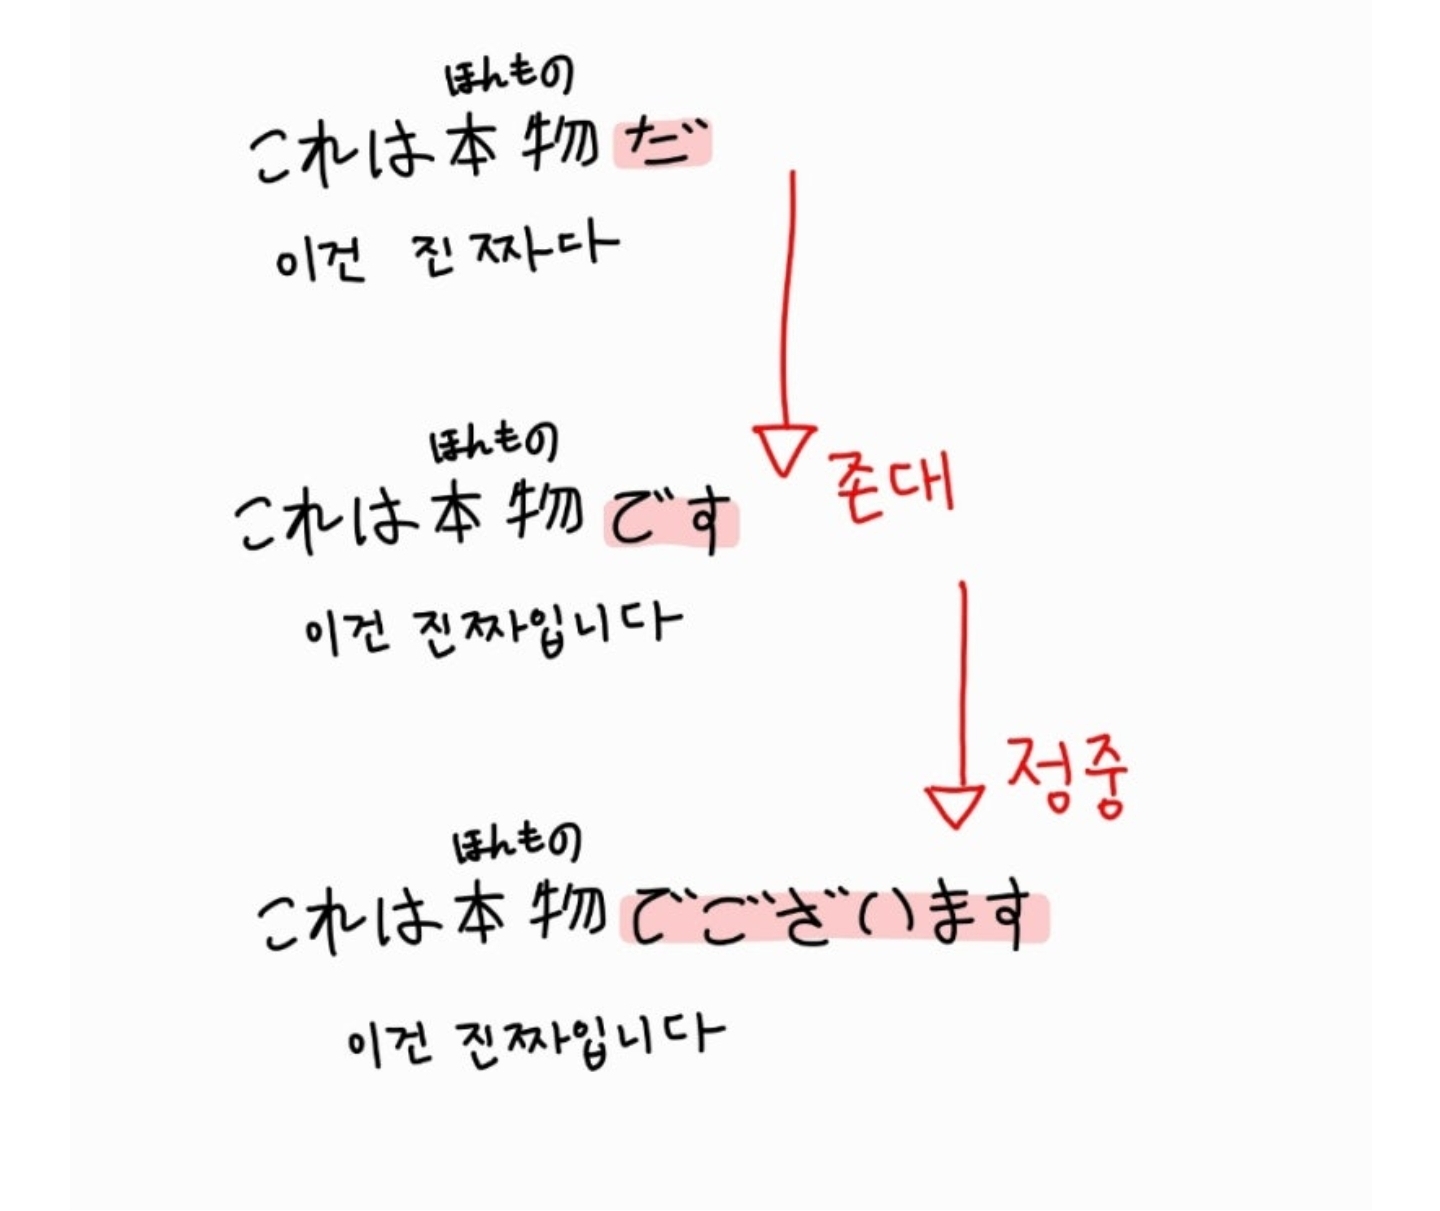 ほんもの
これは本物だ
이건 진짜다
ほんもの
これは本物です
존대
이건 진짜입니다
정중
ほんもの
これは本物でございます
이건 진짜입니다